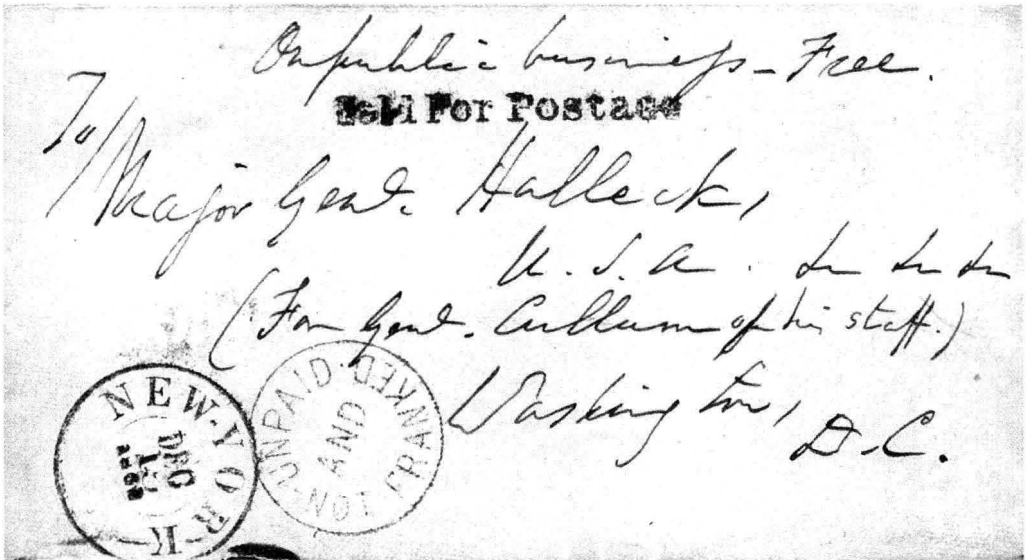 On public business – Free.
Held For Postage
To/
Major Genl. Halleck,
U. S. A.
(For Genl. Cullum of his staff.)
Washington,
D. C.
NEW-YORK
DEC
UNPAID AND NOT FRANKED